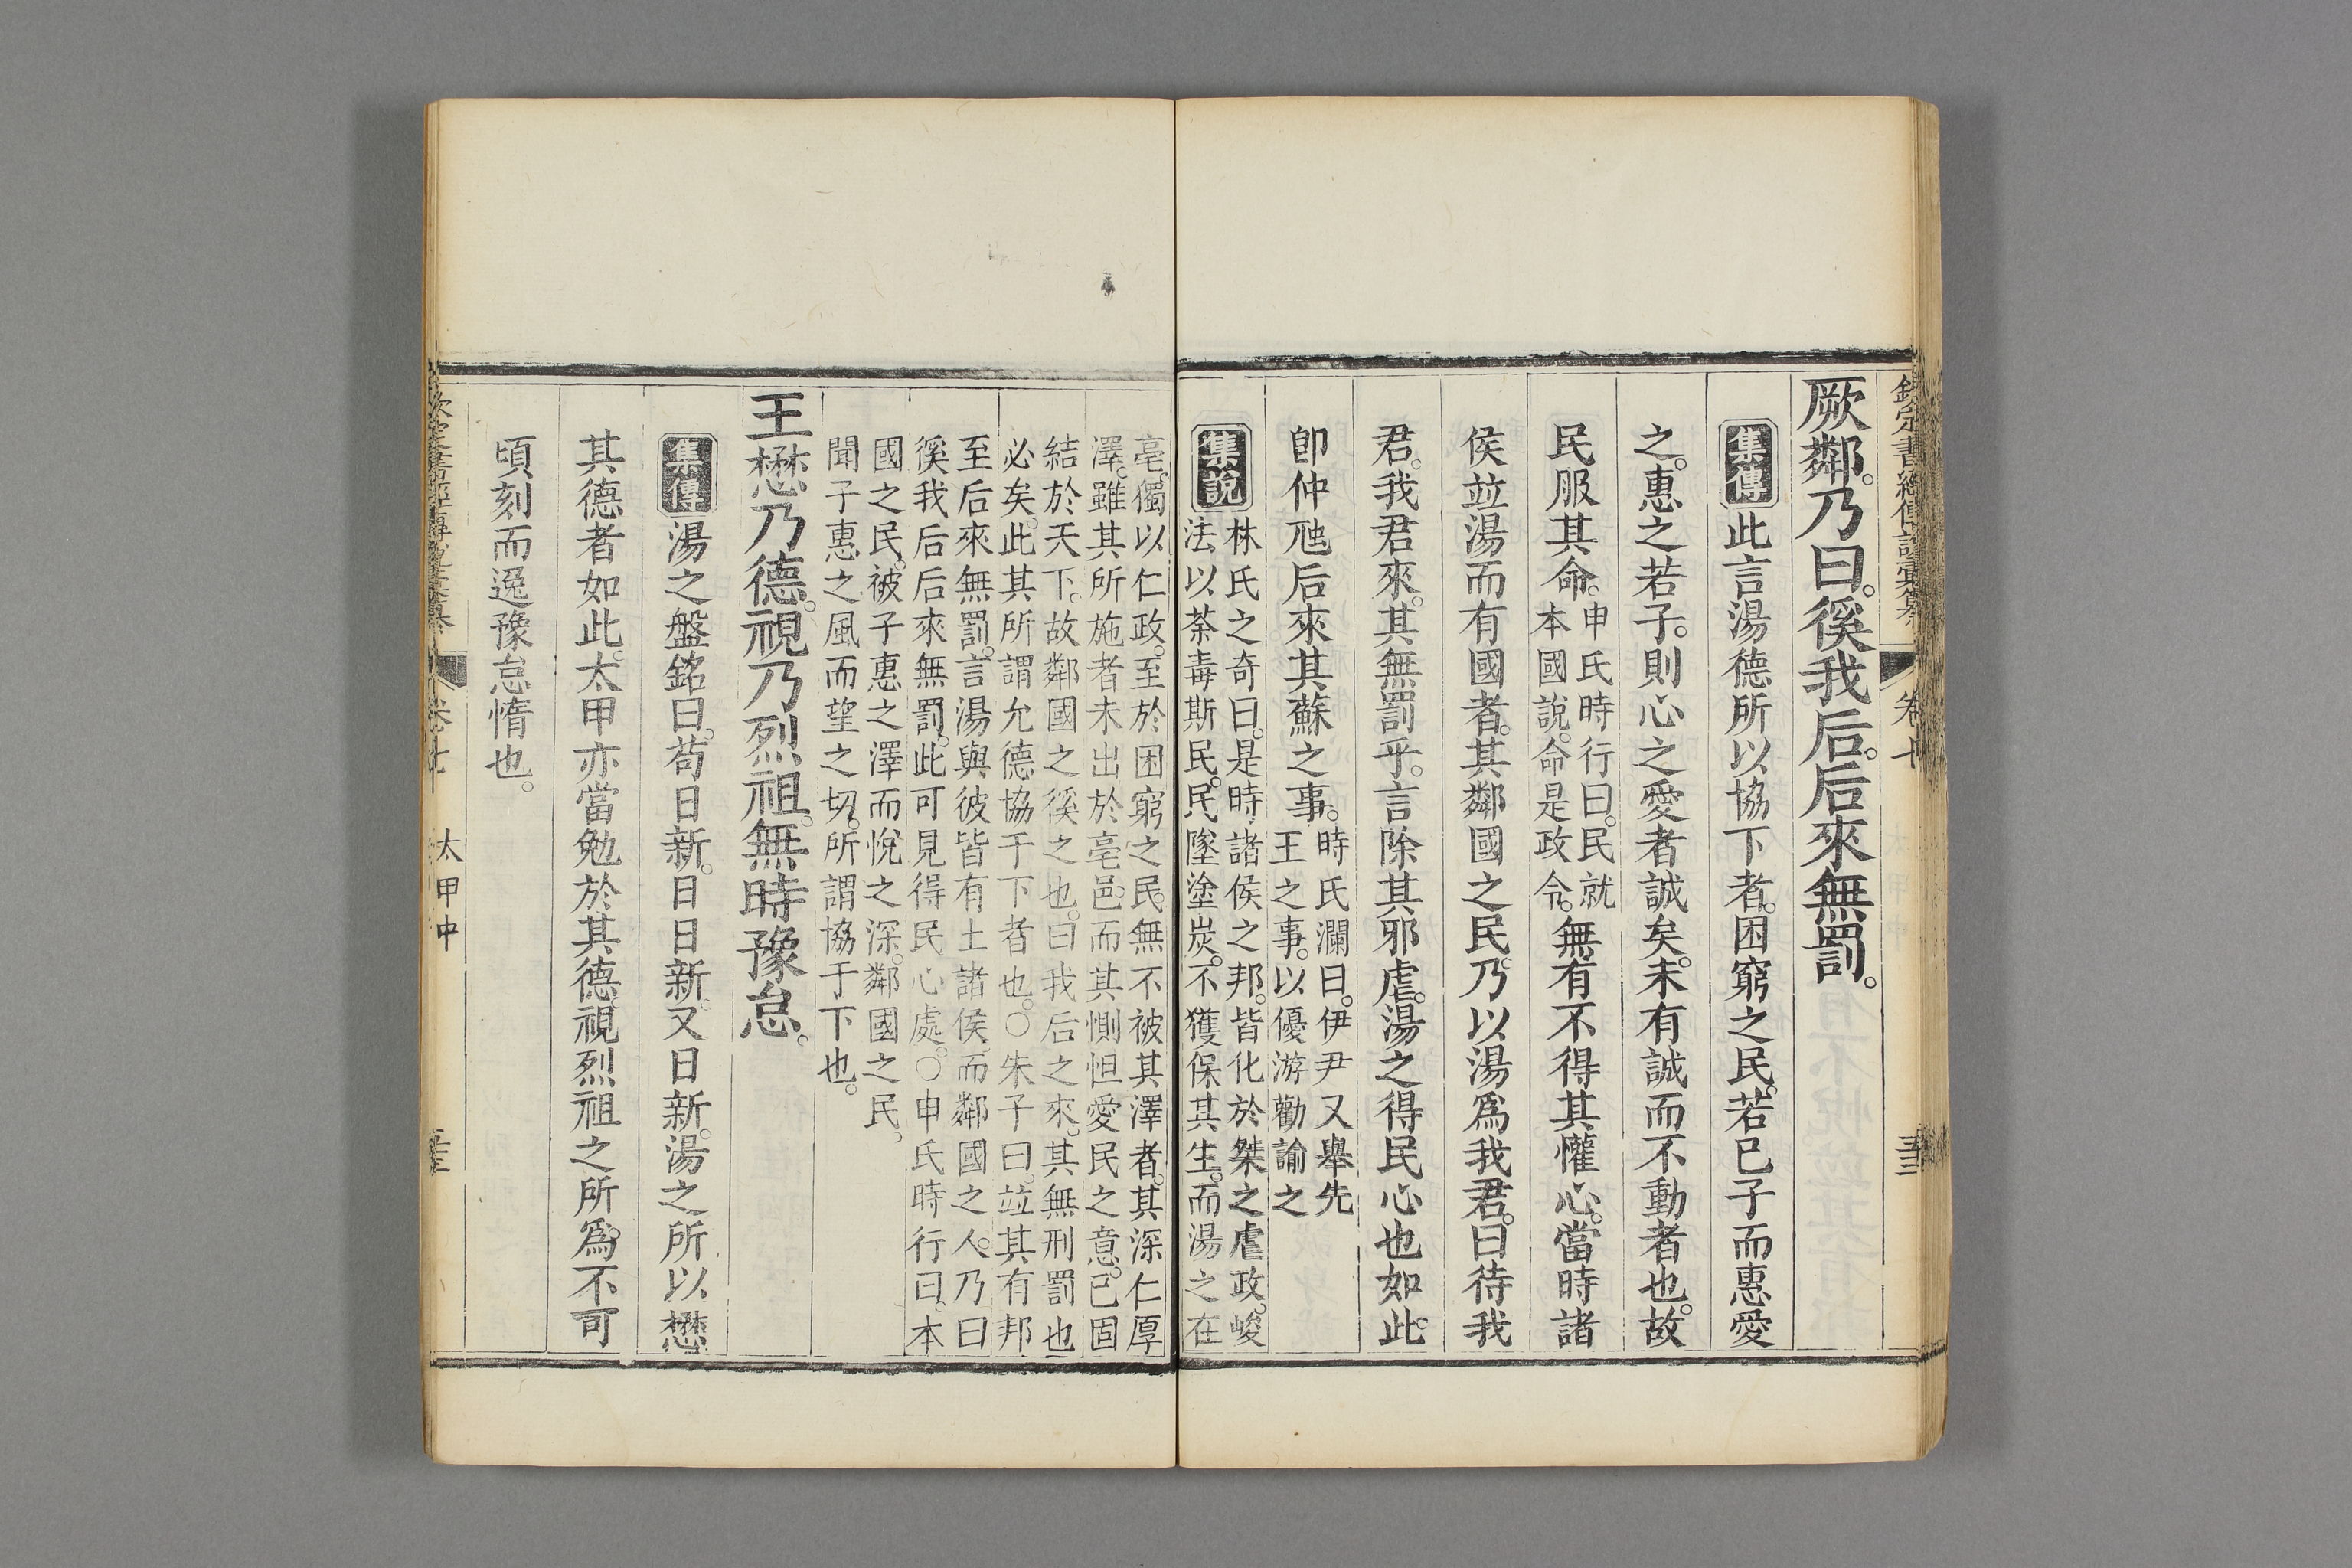 欽定書經傳說彙纂 卷七 三
厥鄰。乃曰。徯我后。后來無罰。
集傳 此言湯德所以協下者。困窮之民。若已子而惠愛
之。惠之若子。則心之愛者誠矣。未有誠而不動者也。故
民服其命。申氏時行曰。民就
本國說。命是政令。無有不得其懽心。當時諸
侯竝湯而有國者。其鄰國之民。乃以湯爲我君。曰待我
君。我君來。其無罰乎。言除其邪虐。湯之得民心也如此。
卽仲虺后來其蘇之事。時氏瀾曰。伊尹又舉先
王之事。以優游勸諭之
集說 林氏之奇曰。是時諸侯之邦。皆化於桀之虐政。峻
法以荼毒斯民。民墜塗炭。不獲保其生。而湯之在
亳。獨以仁政。至於困窮之民。無不被其澤者。其深仁厚
澤。雖其所施者未出於亳邑。而其惻怛愛民之意。已固
結於天下。故鄰國之徯之也。曰我后之來。其無刑罰也
必矣。此其所謂允德協于下者也。○朱子曰。竝其有邦
至后來無罰。言湯與彼皆有土諸侯。而鄰國之人。乃曰
徯我后后來無罰。此可見得民心處。○申氏時行曰。本
國之民。被子惠之澤而悅之深。鄰國之民。
聞子惠之風而望之切。所謂協于下也。
王懋乃德。視乃烈祖。無時豫怠。
集傳 湯之盤銘曰。苟日新。日日新。又日新。湯之所以懋
其德者如此。太甲亦當勉於其德。視烈祖之所爲。不可
頃刻而逸豫怠惰也。
欽定書經傳說彙纂 卷七 太甲中